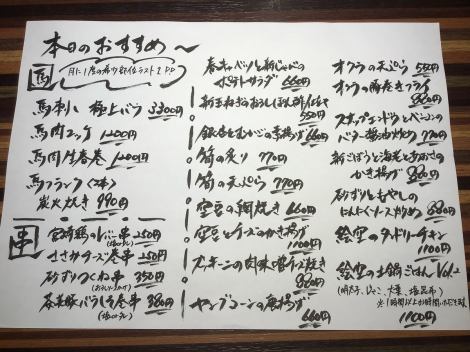 本日のおすすめ〜
馬
月に1度の希少部位ラスト2PP
馬刺し 極上バラ 3300円
馬肉ユッケ 1200円
馬肉生春巻 1200円
馬フランク〈2本〉
炭火焼き 990円
串
宮崎鶏のレバー串 250円
ささみチーズ巻串 250円
砂ずりつくね串 350円
茶美豚バラしそ巻串 380円
春キャベツと新じゃがの
ポテトサラダ 660円
550円
銀杏とむかごの素揚げ 660円
筍の炙り 770円
筍の天ぷら 770円
空豆の網焼き 660円
空豆とチーズのかき揚げ
1100円
ズッキーニの肉味噌チーズ焼き
880円
ヤングコーンの唐揚げ
660円
オクラの天ぷら 550円
オクラの豚巻きフライ
880円
スナップエンドウとベーコンの
バター醤油炒め 770円
新ごぼうと海老とあおさの
かき揚げ 880円
砂ずりともやしの
にんにくソース炒め 880円
絵空のタンドリーチキン
1100円
絵空の土鍋ごはん Vol.2
(明太子、じゃこ、大葉、塩昆布)
※1時間以上お時間いただきます
1100円